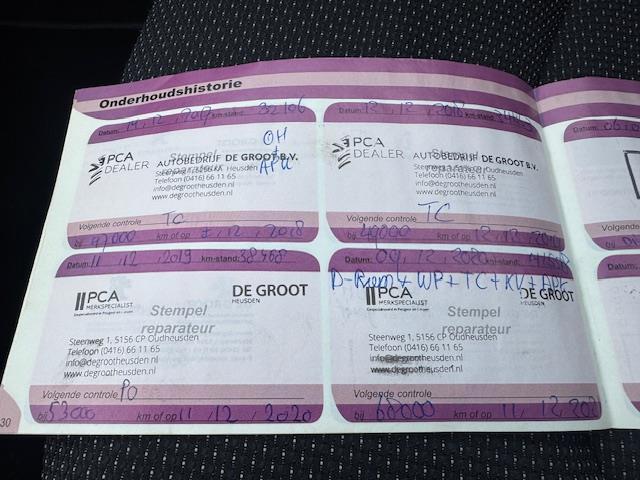 Onderhoudshistorie
Datum: 14, 12, 2017 km-stand: 32106
OH
+
APK
PCA
DEALER
Stempel
reparateur
AUTOBEDRIJF DE GROOT B.V.
Steenweg 1, 5156 CP Oudheusden
Telefoon (0416) 66 11 65
info@degrootheusden.nl
www.degrootheusden.nl
Volgende controle TC
bij 47000 km of op 7, 12, 2018
Datum: 12, 12, 2018 km-stand:
PCA
DEALER
Stempel
reparateur
AUTOBEDRIJF DE GROOT B.V.
Steenweg 1, 5156 CP Oudheusden
Telefoon (0416) 66 11 65
info@degrootheusden.nl
www.degrootheusden.nl
Volgende controle TC
bij 49000 km of op 12, 12,
Datum: 11, 12, 2019 km-stand: 38468
PCA
MERKSPECIALIST
Gespecialiseerd in Peugeot en Citroën
DE GROOT
HEUSDEN
Stempel
reparateur
Steenweg 1, 5156 CP Oudheusden
Telefoon (0416) 66 11 65
info@degrootheusden.nl
www.degrootheusden.nl
Volgende controle PO
bij 53000 km of op 11, 12, 2020
Datum: 09, 12, 2020 km-stand:
D-Riem + WP + TC + KV + APK
PCA
MERKSPECIALIST
Gespecialiseerd in Peugeot en Citroën
DE GROOT
HEUSDEN
Stempel
reparateur
Steenweg 1, 5156 CP Oudheusden
Telefoon (0416) 66 11 65
info@degrootheusden.nl
www.degrootheusden.nl
Volgende controle
bij 68000 km of op 11, 12,
Datum:
Volgende
bij
30